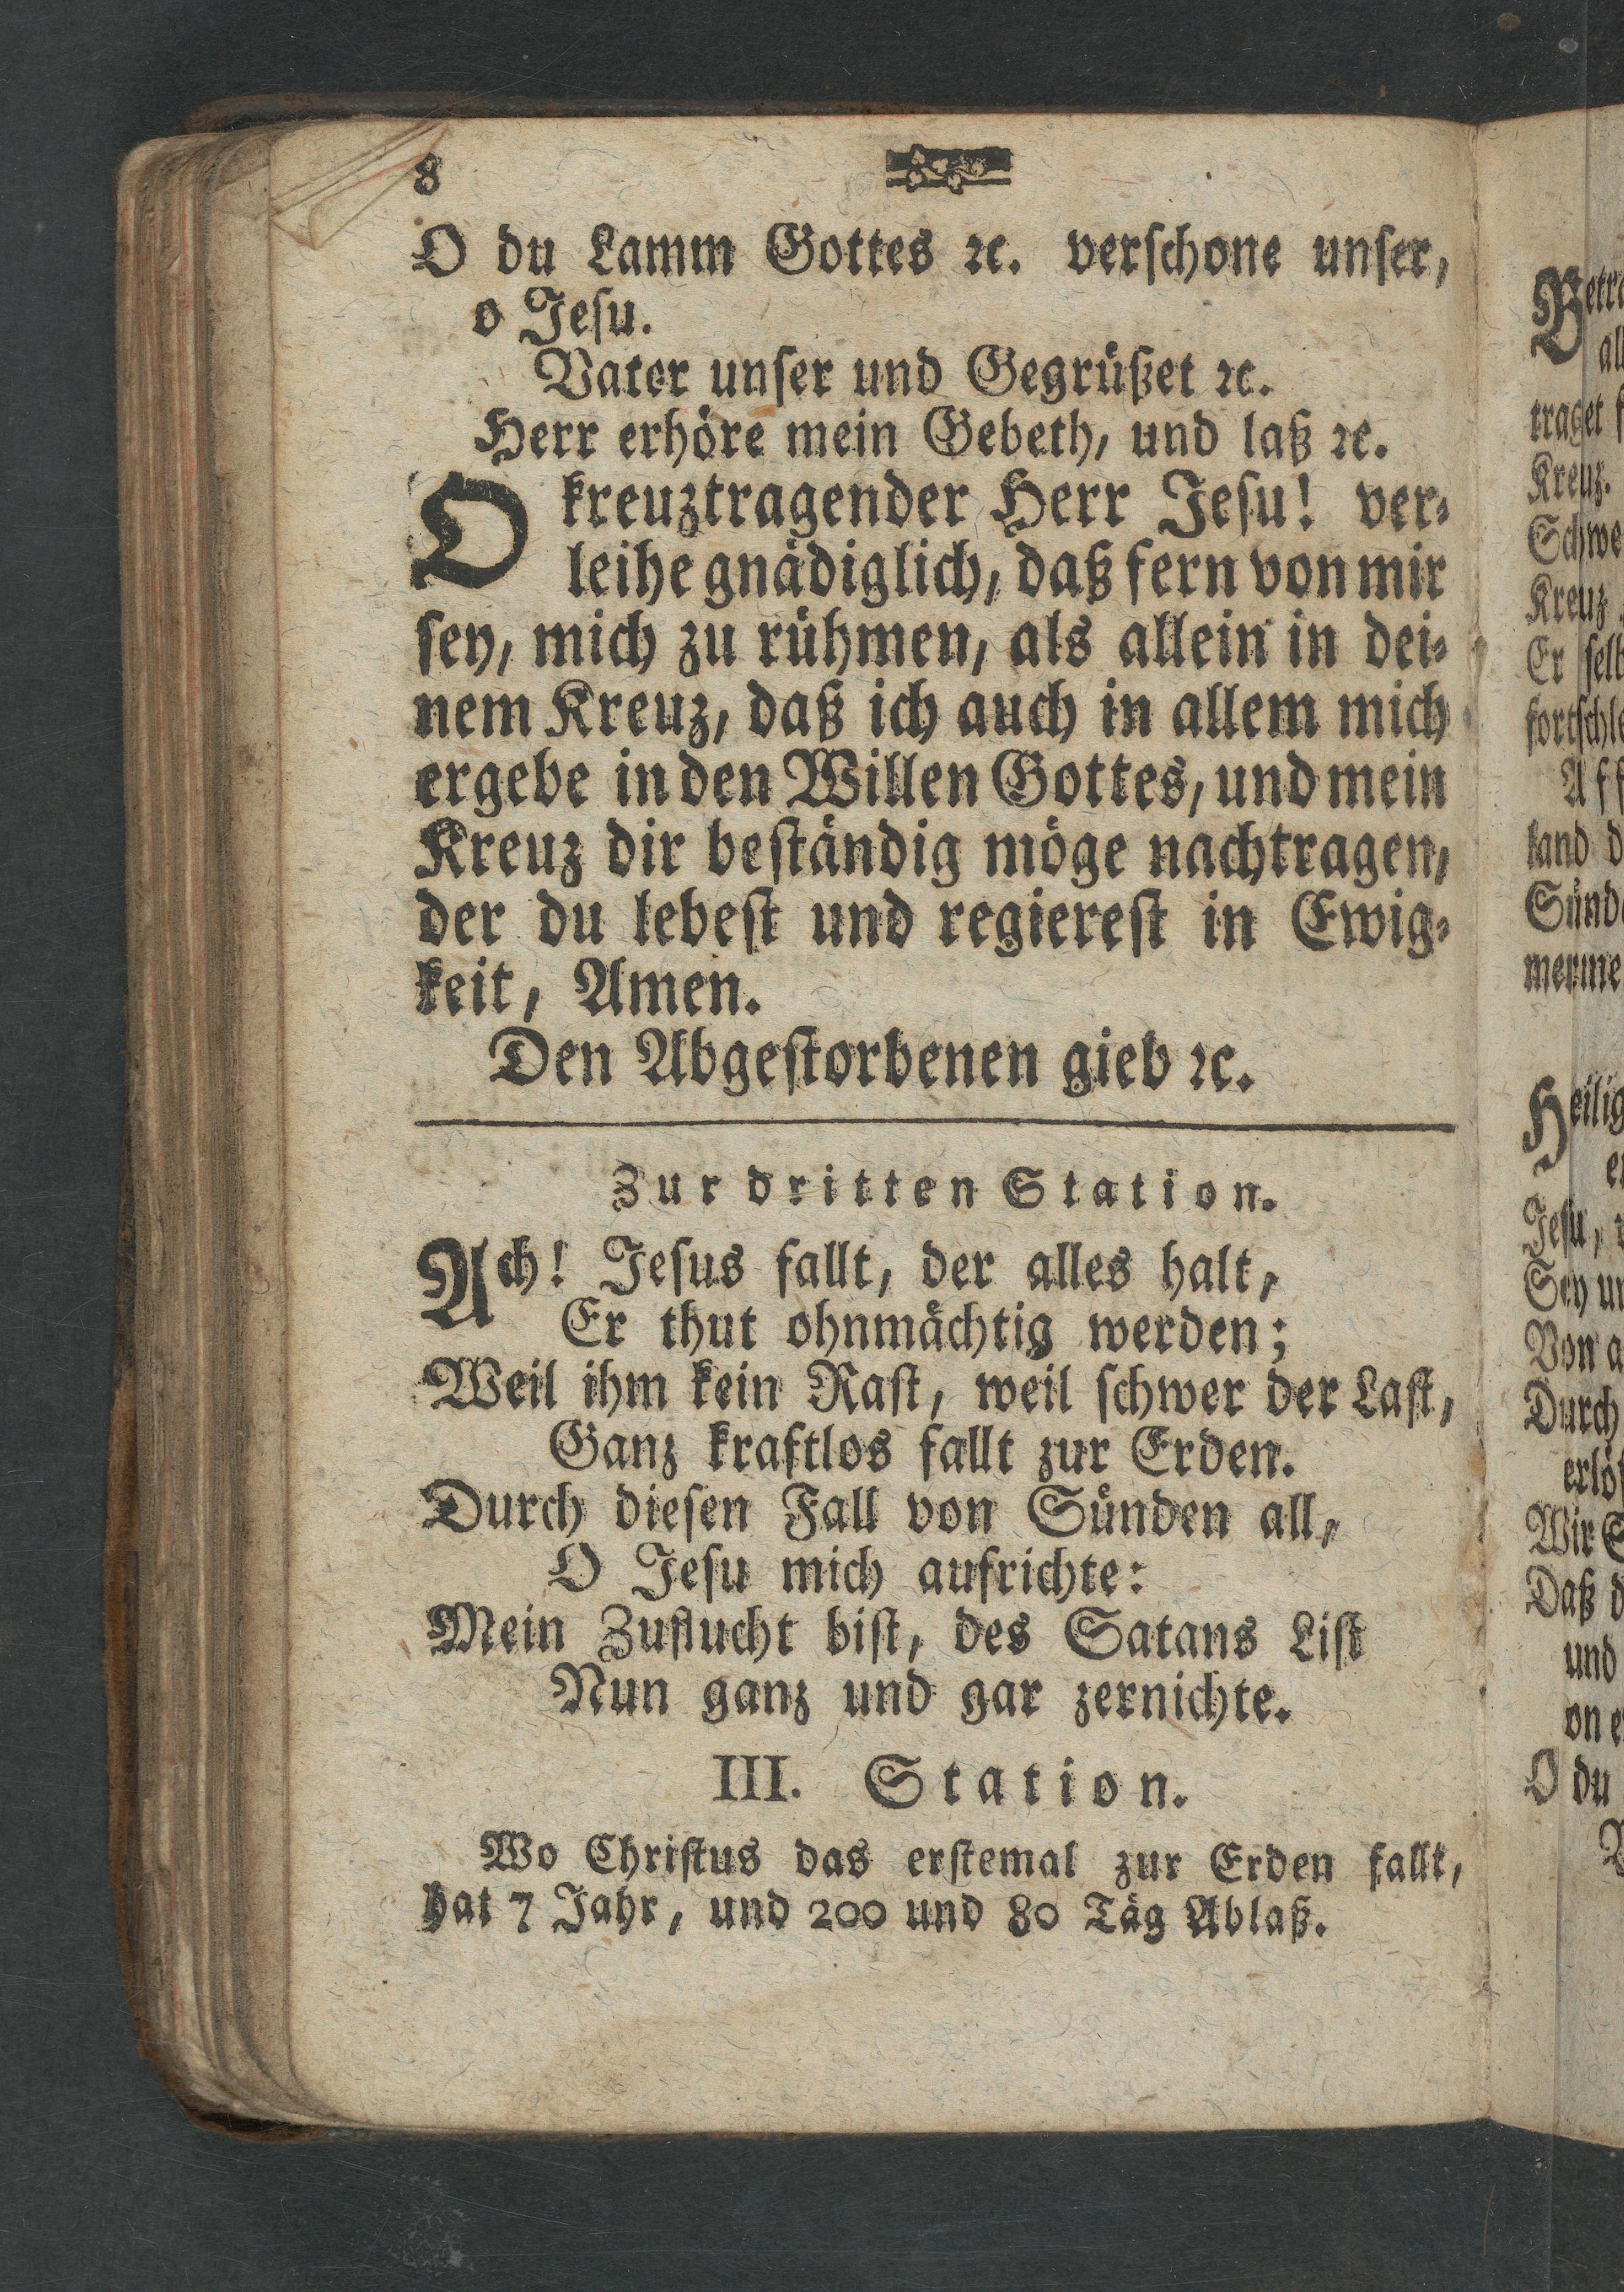 8
O du Lamm Gottes ꝛc. verschone unser,
o Jesu.
Vater unser und Gegrüßet ꝛc.
Herr erhöre mein Gebeth, und laß ꝛc.
O kreuztragender Herr Jesu! ver-
leihe gnädiglich, daß fern von mir
sey, mich zu rühmen, als allein in dei-
nem Kreuz, daß ich auch in allem mich
ergebe in den Willen Gottes, und mein
Kreuz dir beständig möge nachtragen,
der du lebest und regierest in Ewig-
keit, Amen.
Den Abgestorbenen gieb ꝛc.
Zur dritten Station.
Ach! Jesus fallt, der alles halt,
Er thut ohnmächtig werden;
Weil ihm kein Rast, weil schwer der Last,
Ganz kraftlos fallt zur Erden.
Durch diesen Fall von Sünden all,
O Jesu mich aufrichte:
Mein Zuflucht bist, des Satans List
Nun ganz und gar zernichte.
III. Station.
Wo Christus das erstemal zur Erden fallt,
hat 7 Jahr, und 200 und 80 Täg Ablaß.
traget
Kreuz.
Kreuz
Er
Jesu,
Von
Durch
Wir
Daß
und
O du